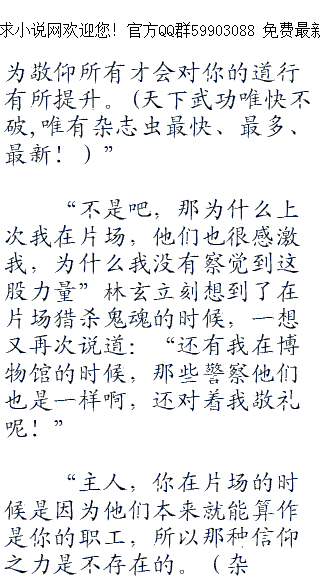 求小说网欢迎您！官方QQ群59903088 免费最新
为敬仰所有才会对你的道行
有所提升。(天下武功唯快不
破,唯有杂志虫最快、最多、
最新！）”
“不是吧，那为什么上
次我在片场，他们也很感激
我，为什么我没有察觉到这
股力量”林玄立刻想到了在
片场猎杀鬼魂的时候，一想
又再次说道：“还有我在博
物馆的时候，那些警察他们
也是一样啊，还对着我敬礼
呢！”
“主人，你在片场的时
候是因为他们本来就能算作
是你的职工，所以那种信仰
之力是不存在的。（杂